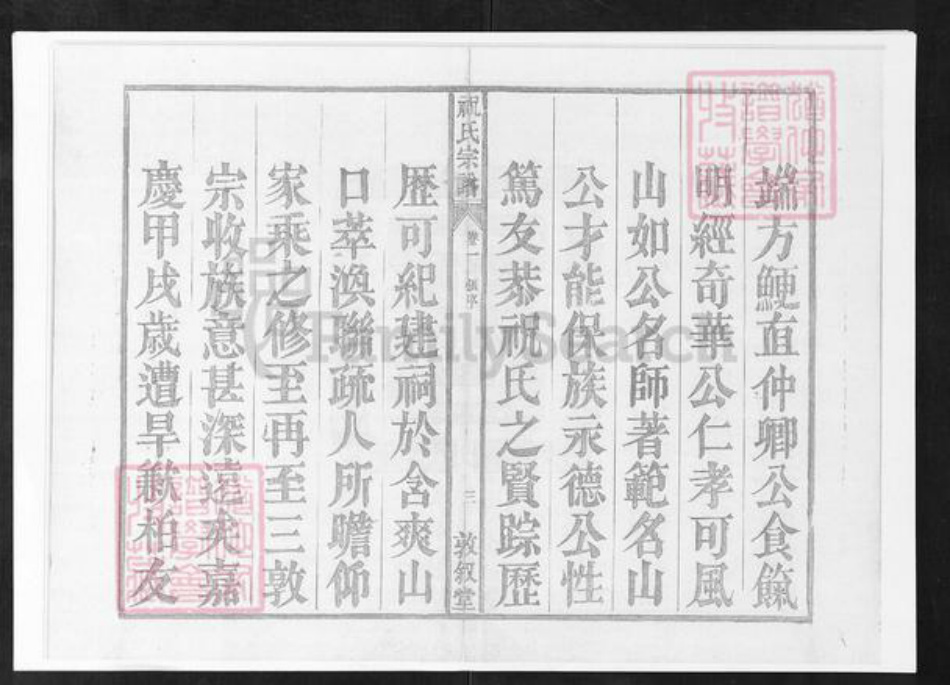 端方鯁直仲卿公食餼
明經奇華公仁孝可風
山如公名師著範名山
公才能保族永德公性
篤友恭祝氏之賢踪歷
祝氏宗譜
卷一
三
敦叙堂
歷可紀建祠於含爽山
口萃渙聯疏人所瞻仰
家乘之修至再至三敦
宗收族意甚深遠矣嘉
慶甲戌歲遭旱歉柏友
FamilySearch